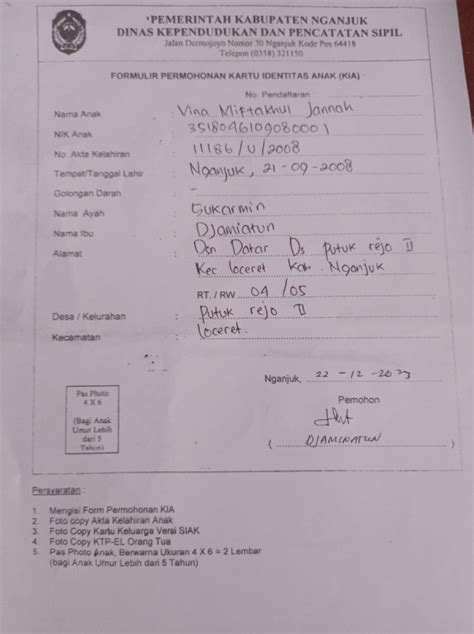 PEMERINTAH KABUPATEN NGANJUK
DINAS KEPENDUDUKAN DAN PENCATATAN SIPIL
Jalan Dermojoyo Nomor 30 Nganjuk Kode Pos 64418
Telepon (0358) 321150
FORMULIR PERMOHONAN KARTU IDENTITAS ANAK (KIA)
No. Pendaftaran
Nama Anak : Vina Miftakhul Jannah
NIK Anak : 3518046109080001
No. Akta Kelahiran : 11186/U/2008
Tempat/Tanggal Lahir : Nganjuk, 21-09-2008
Golongan Darah : -
Nama Ayah : Sukarmin
Nama Ibu : Djamiatun
Alamat : Dsn Datar Ds putuk rejo II
Kec loceret kab. Nganjuk
RT. / RW 04 / 05
Desa / Kelurahan : putuk rejo II
Kecamatan : loceret.
Nganjuk, 22 - 12 - 2023
Pas Photo
4 X 6
(Bagi Anak
Umur Lebih
dari 5
Tahun)
Pemohon
( DJAMINATUN )
Persyaratan :
1. Mengisi Form Permohonan KIA
2. Foto copy Akta Kelahiran Anak
3. Foto Copy Kartu Keluarga Versi SIAK
4. Foto Copy KTP-EL Orang Tua
5. Pas Photo Anak, Berwarna Ukuran 4 X 6 = 2 Lembar
(bagi Anak Umur Lebih dari 5 Tahun)